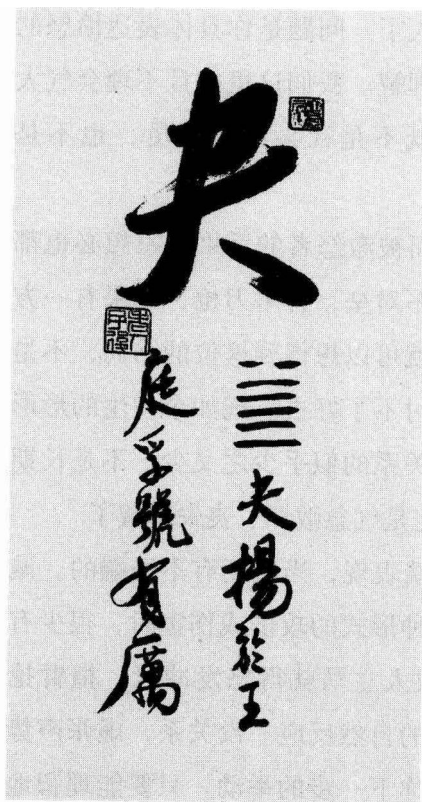 夬
䷪夬揚於王
庭孚號有厲